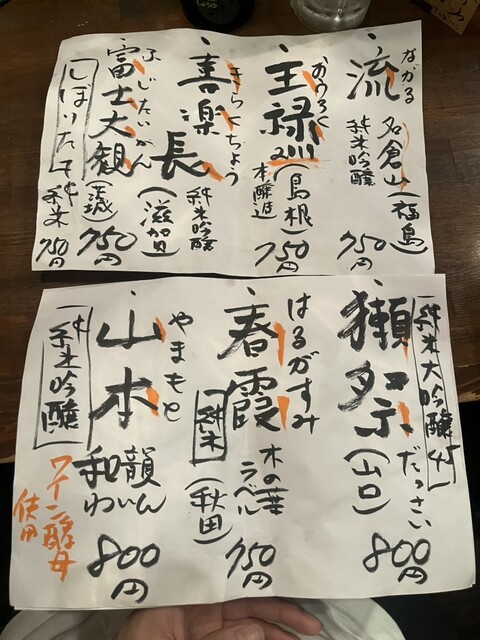 流
ながる
名倉山(福島)
純米吟醸
750円
王祿
おうろく
(島根)
本醸造
750円
喜楽長
きらくちょう
純米吟醸
(滋賀)
750円
富士大観
ふじたいかん
しぼりたて
(茨城)
純米
750円
純米大吟醸45
獺祭
だっさい
(山口)
800円
春霞
はるがすみ
純米
木の葉
ラベル
(秋田)
750円
山本
やまもと
純米吟醸
和韻
わいん
ワイン酵母
使用
800円